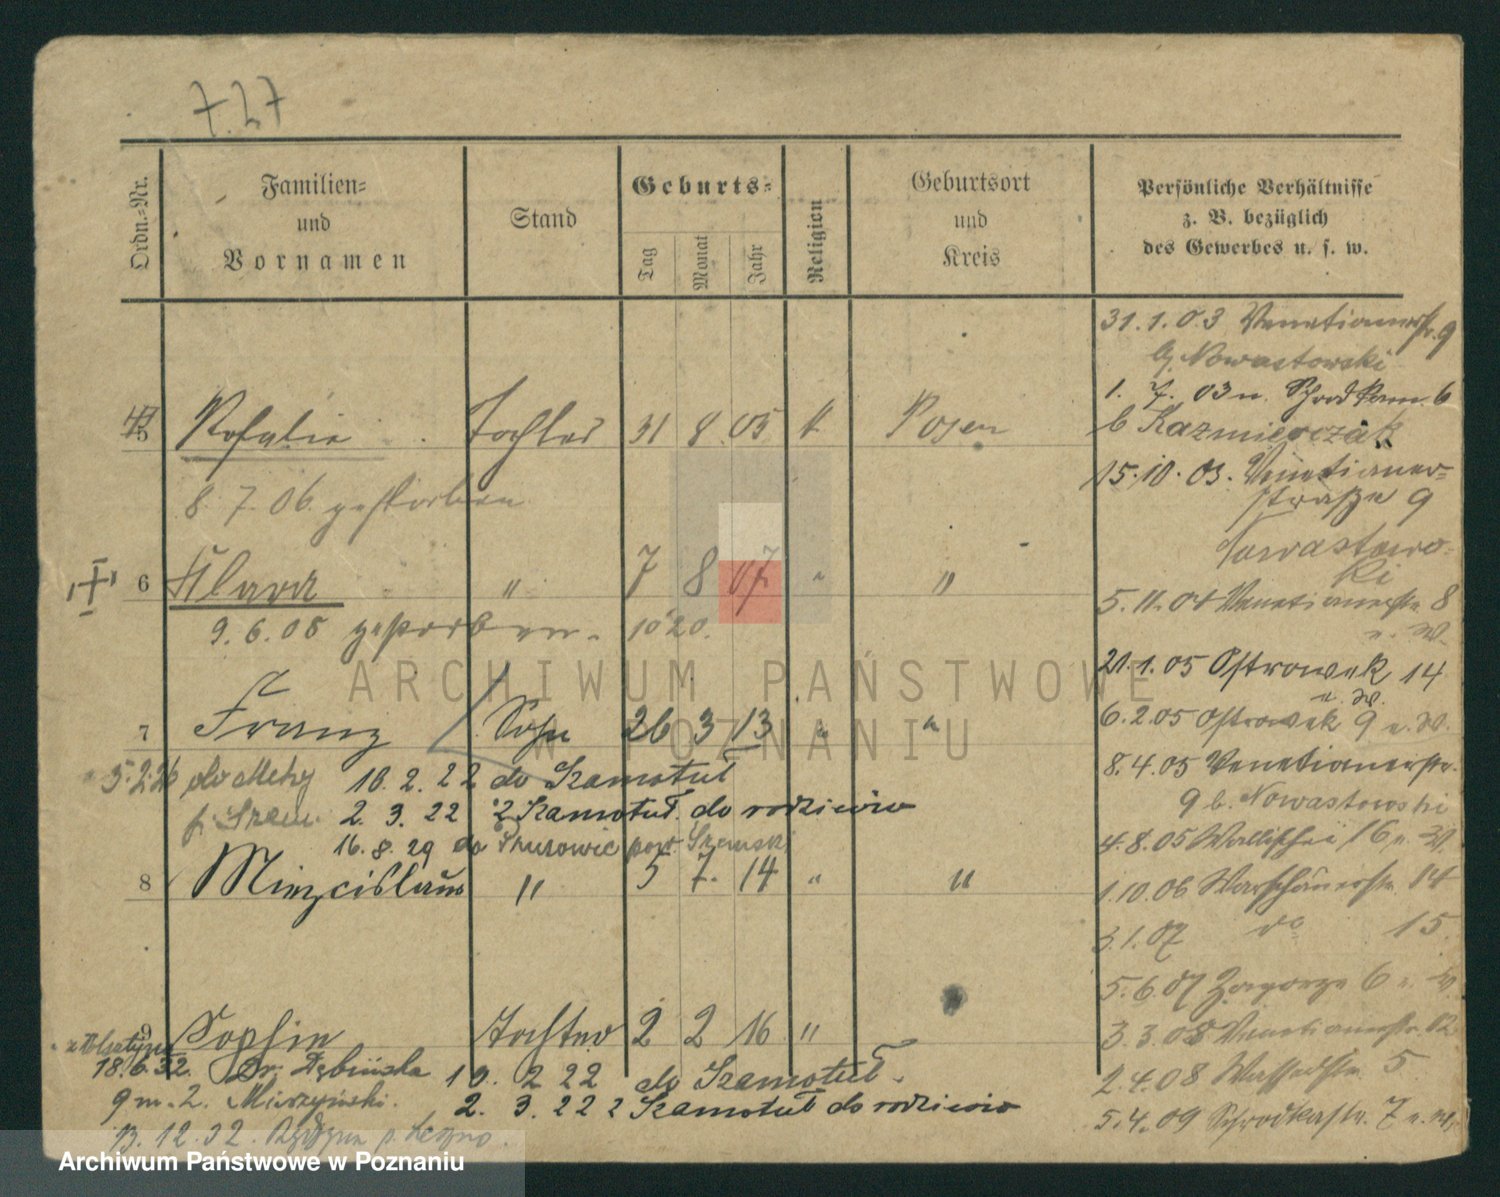 7.27
Ordn.-Nr.
Familien-
und
Vornamen
Stand
Geburts-
Tag
Monat
Jahr
Religion
Geburtsort
und
Kreis
Persönliche Verhältnisse
z. B. bezüglich
des Gewerbes u. s. w.
5 Rosalie Tochter 31 8 05 k Posen
8. 7. 06. gestorben
6 Klara " 7 8 07 " "
9. 6. 08 gestorben.
7 Franz Sohn 26 3 13 " "
5.2.26 do 10. 2. 22 do Szamotuł
2. 3. 22 z Szamotuł do rodziców
16. 8. 29 do
8 Mieczislaus " 5 7. 14 " "
9 Sophie Tochter 2 2 16 "
18.6.32. Dr. Dębińska 10. 2 22 do Szamotuł
9 m. 2. Murzyński. 2. 3. 22 z Szamotuł do rodziców
13. 12. 32.
31. 1. 03 Venetianerstr. 9
b. Nowastowski
1. 7. 03 n. Schrodkam. 6
b Kazmierczak
15. 10. 03. Venetianer-
straße 9
Nowastows-
ki
5. 11. 04 Venetianerstr. 8
n. W.
21. 1. 05 Ostrowek 14
n W.
6. 2. 05 Ostrowek 9 n. W.
8. 4. 05 Venetianerstr.
9 b. Nowastowski
4. 8. 05 Wallischei 16 n. W.
1. 10. 06 Warschauerstr. 14
3. 1. 07 do 15
5. 6. 07 Zagorze 6 n. W.
3. 3. 08 Venetianerstr. 12
2. 4. 08 Wallischstr. 5
5. 4. 09 Schrodkastr. 7 n. W.
ARCHIWUM PAŃSTWOWE
W POZNANIU
Archiwum Państwowe w Poznaniu